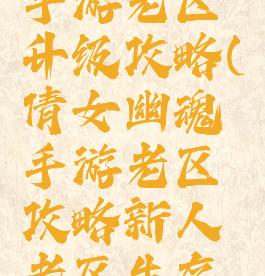 手游老区
升级攻略(
倩女幽魂
手游老区
攻略新人
老区生存